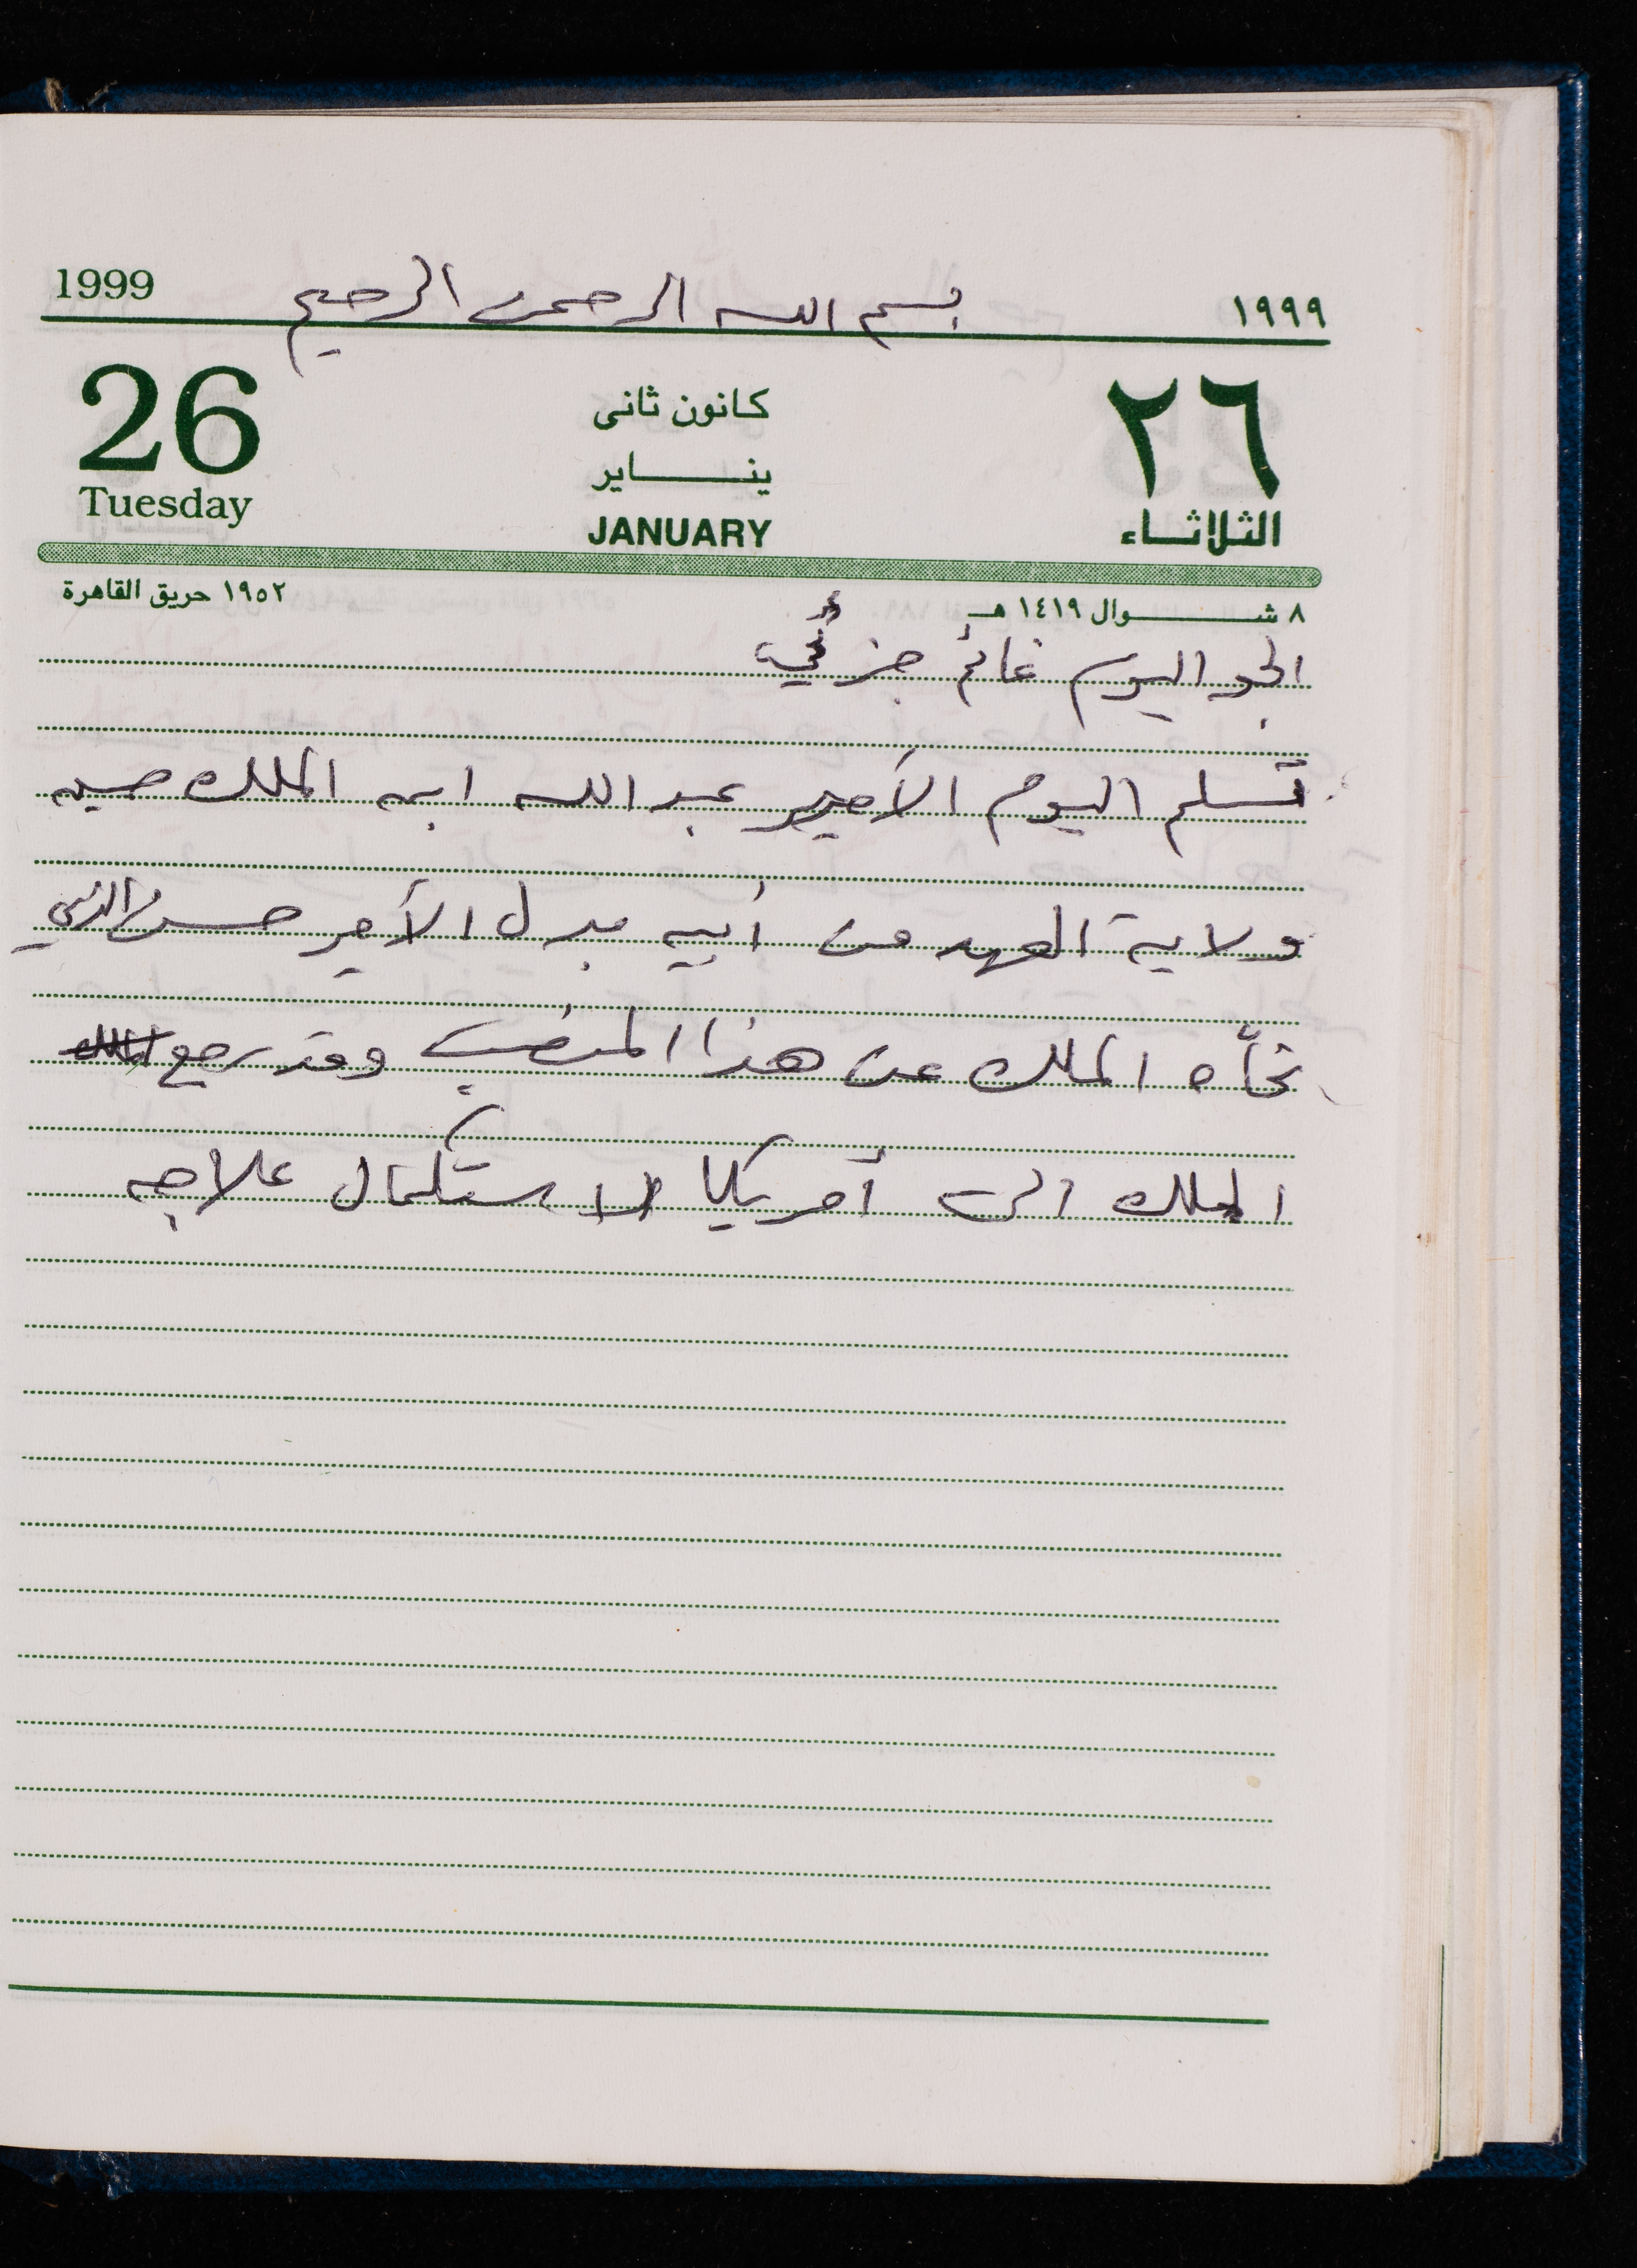 1999 بسم الله الرحمن الرحيم ١٩٩٩
26 كانون ثانى ٢٦
يناير
Tuesday JANUARY الثلاثاء
٨ شوال ١٤١٩ هـ ١٩٥٢ حريق القاهرة
الجو اليوم غائم جزئي
تسلم اليوم الأمير عبد الله ابن الملك حسين
ولاية العهد من أبيه بدل الأمير حسن الذي
نحأه الملك عن هذا المنصب وقد رجع
الملك الى أمريكا لاستكمال علاجه